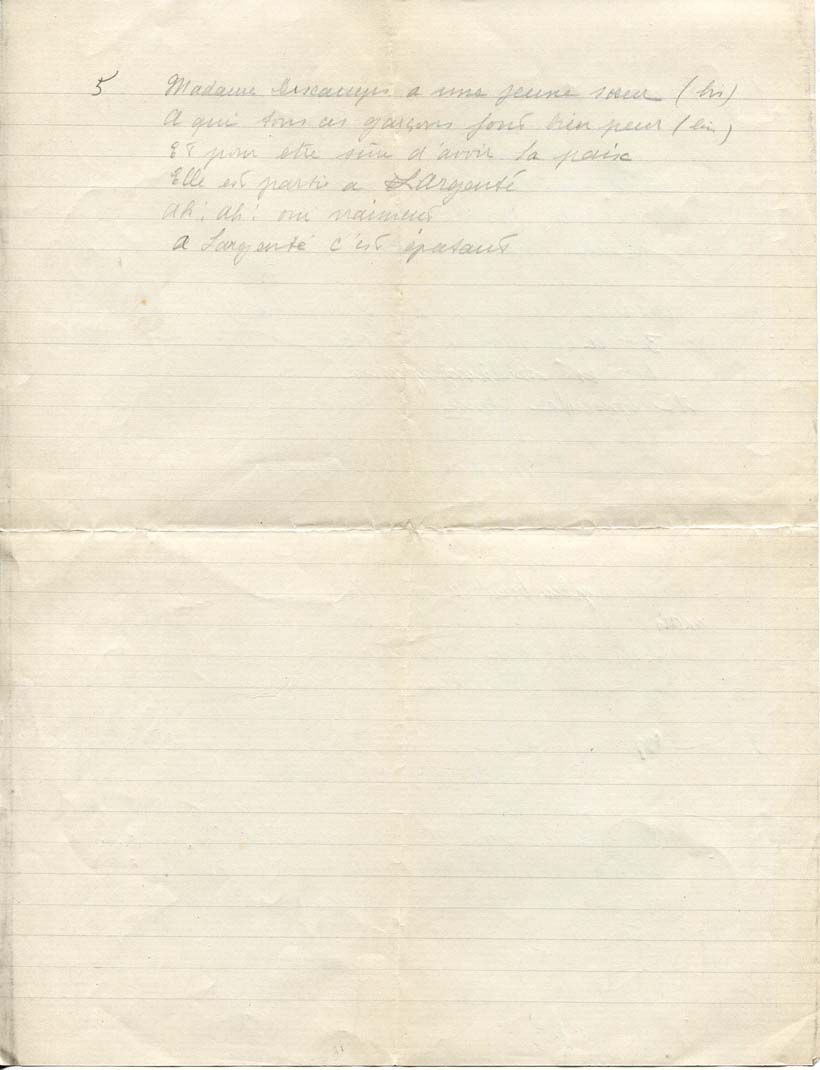 5 Madame a une jeune sœur (bis)
A qui tous ces garçons font bien peur (bis)
Et pour être sûre d'avoir la paix
Elle est partie a L'Argenté
Ah! Ah! oui vraiment
A Largenté c'est épatant